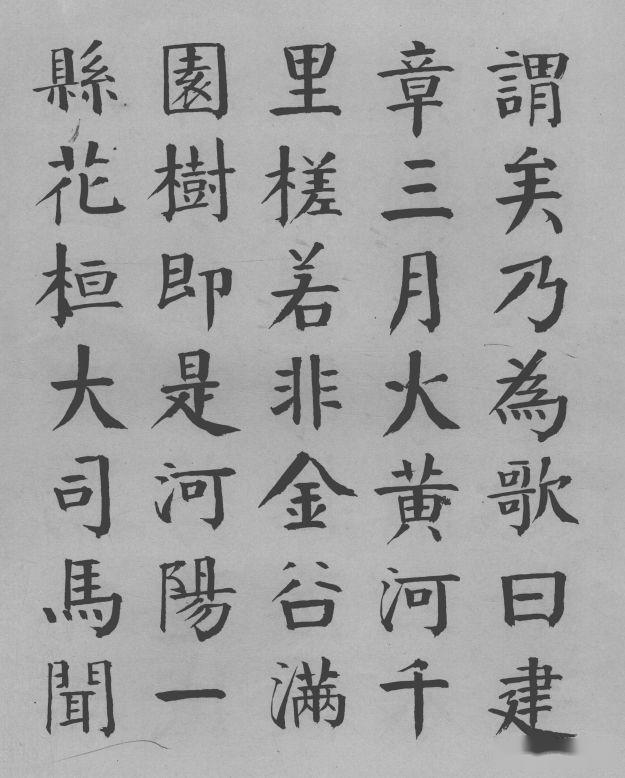 謂矣乃為歌曰建
章三月火黄河千
里槎若非金谷满
園樹即是河陽一
縣花桓大司馬聞